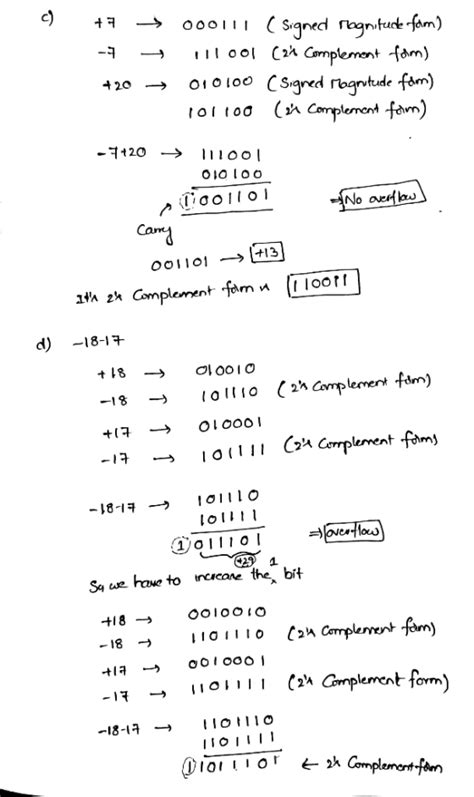 c) +7 → 000111 (Signed Magnitude form)
-7 → 111001 (2's Complement form)
+20 → 010100 (Signed Magnitude form)
101100 (2's Complement form)
-7+20 → 111001
010100
①001101 ⇒ No overflow
Carry
001101 → +13
It's 2's Complement form is 110011
d) -18-17
+18 → 010010
-18 → 101110 (2's Complement form)
+17 → 010001
-17 → 101111 (2's Complement form)
-18-17 → 101110
101111
①011101 ⇒ overflow
+29
So we have to increase the 1 bit
+18 → 0010010
-18 → 1101110 (2's Complement form)
+17 → 0010001
-17 → 1101111 (2's Complement form)
-18-17 → 1101110
1101111
①1011101 ← 2's Complement form